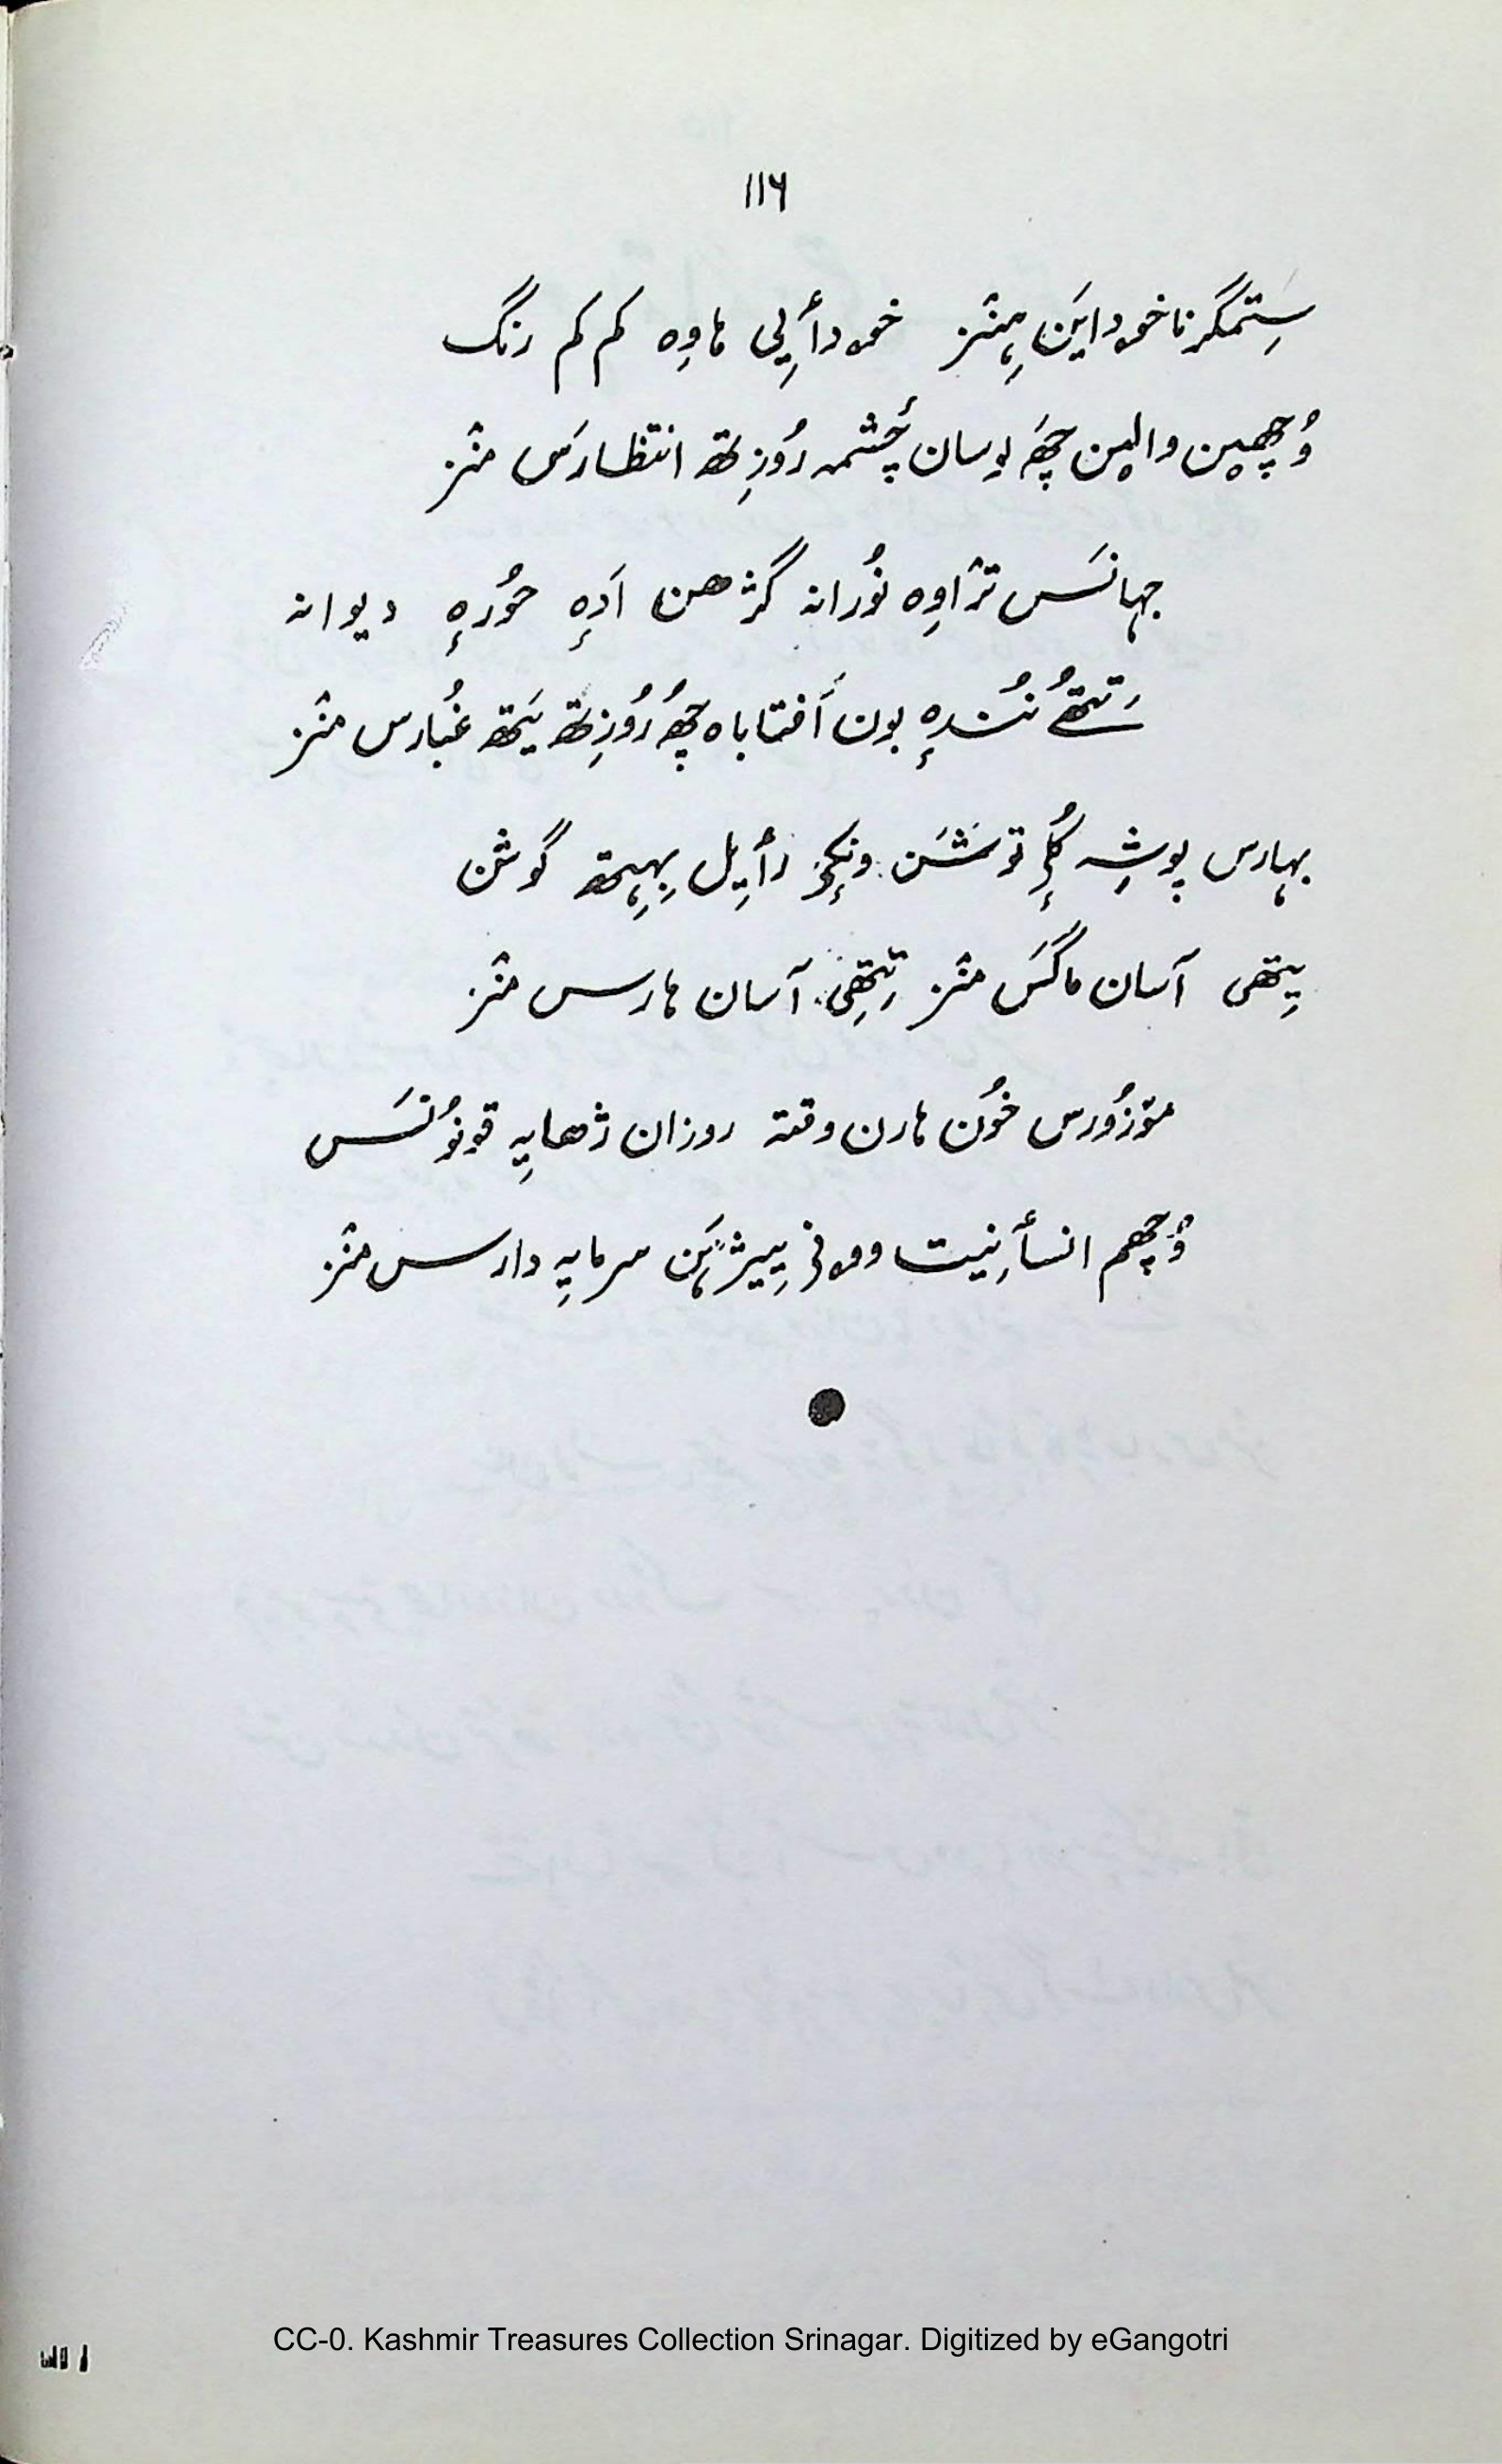 ١١٦
سِتمگر ناخودایَن ہِنٛز خودأیی ہاوِہ کم کم رنگ
وُچھین والین چھَ لوسان چٔشمہ رُوزِتھ انتظارَس منٛز
جہانَس ترٛاوِہ نُورانہ گژھن اَدٕہ حوٗرٕہ دیوانہ
تِتھُے سُندٕہ بون اَفتاباہ چھُ رُوزِتھ یَتھ غُبارس منٛز
بہارس پوشِہ کُلٕ توشَن ونکٕچ رأیِل بِہِتھ گوشن
یِتھی آسان ماگَس منٛز تِتھی آسان ہارس منٛز
موٚزوٗرس خوٗن ہارن وقتہ روزان ژھایہِ قونوٗنَس
وُچھم انسأنِیت وونی بییژَہَن سرمایہِ دارس منٛز
CC-0. Kashmir Treasures Collection Srinagar. Digitized by eGangotri